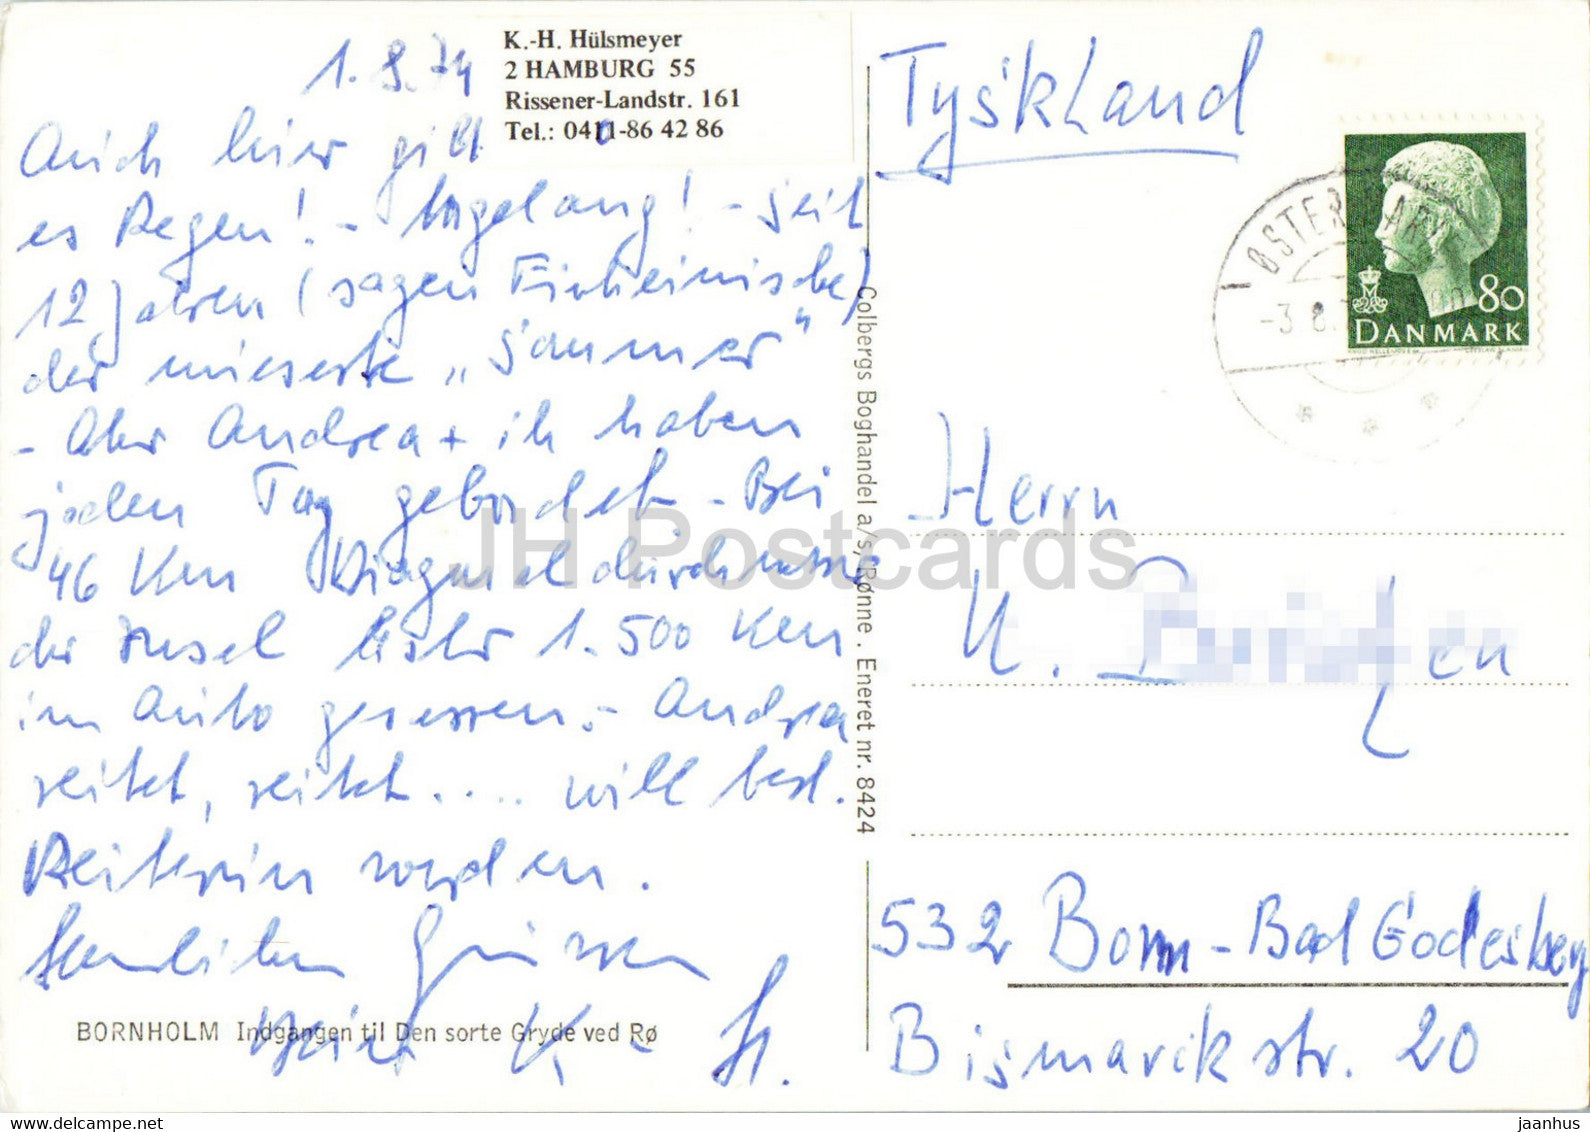 1.8.74
K.-H. Hülsmeyer
2 HAMBURG 55
Rissener-Landstr. 161
Tel.: 0411-86 42 86
Auch hier gilt
es Regen! - tagelang! - seit
12 Jahren (sagen Einheimische)
der mieseste „Sommer"
- Aber Andrea + ich haben
jeden Tag gebadet - Bei
46 Km Diagonaldurchmesser
der Insel bisher 1.500 Km
im Auto gesessen. - Andrea
reitet, reitet.... will best.
Reiterin werden.
Herzlichen Grüssen
K - H.
BORNHOLM Indgangen til Den sorte Gryde ved Rø
Colbergs Boghandel a/s, Rønne . Eneret nr. 8424
Tyskland
ØSTERMARIE
-3.8.
80
DANMARK
Herrn
532 Bonn-Bad Godesberg
Bismarckstr. 20
JH Postcards
www.delcampe.net
jaanhus